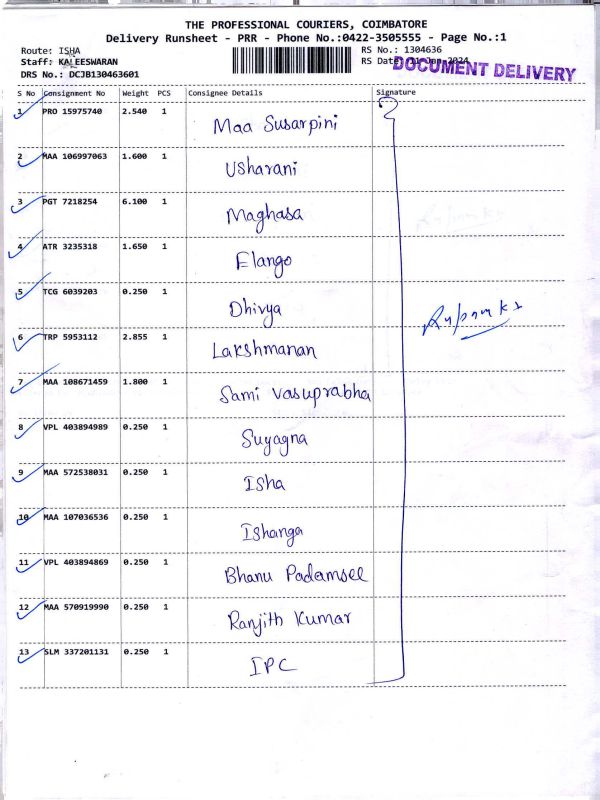 THE PROFESSIONAL COURIERS, COIMBATORE
Delivery Runsheet - PRR - Phone No.:0422-3505555 - Page No.:1
Route: ISHA RS No.: 1304636
Staff: KALEESWARAN RS Date: 11 Jan 2024
DOCUMENT DELIVERY
DRS No.: DCJB130463601
S No Consignment No Weight PCS Consignee Details Signature
1 PRO 15975740 2.540 1 Maa Susarpini
2 MAA 106997063 1.600 1 Usharani
3 PGT 7218254 6.100 1 Maghasa
4 ATR 3235318 1.650 1 Elango
5 TCG 6039203 0.250 1 Dhivya
6 TRP 5953112 2.855 1 Lakshmanan
7 MAA 108671459 1.800 1 Sami Vasuprabha
8 VPL 403894989 0.250 1 Suyagna
9 MAA 572538031 0.250 1 Isha
10 MAA 107036536 0.250 1 Ishanga
11 VPL 403894869 0.250 1 Bhanu Padamsee
12 MAA 570919990 0.250 1 Ranjith Kumar
13 SLM 337201131 0.250 1 IPC